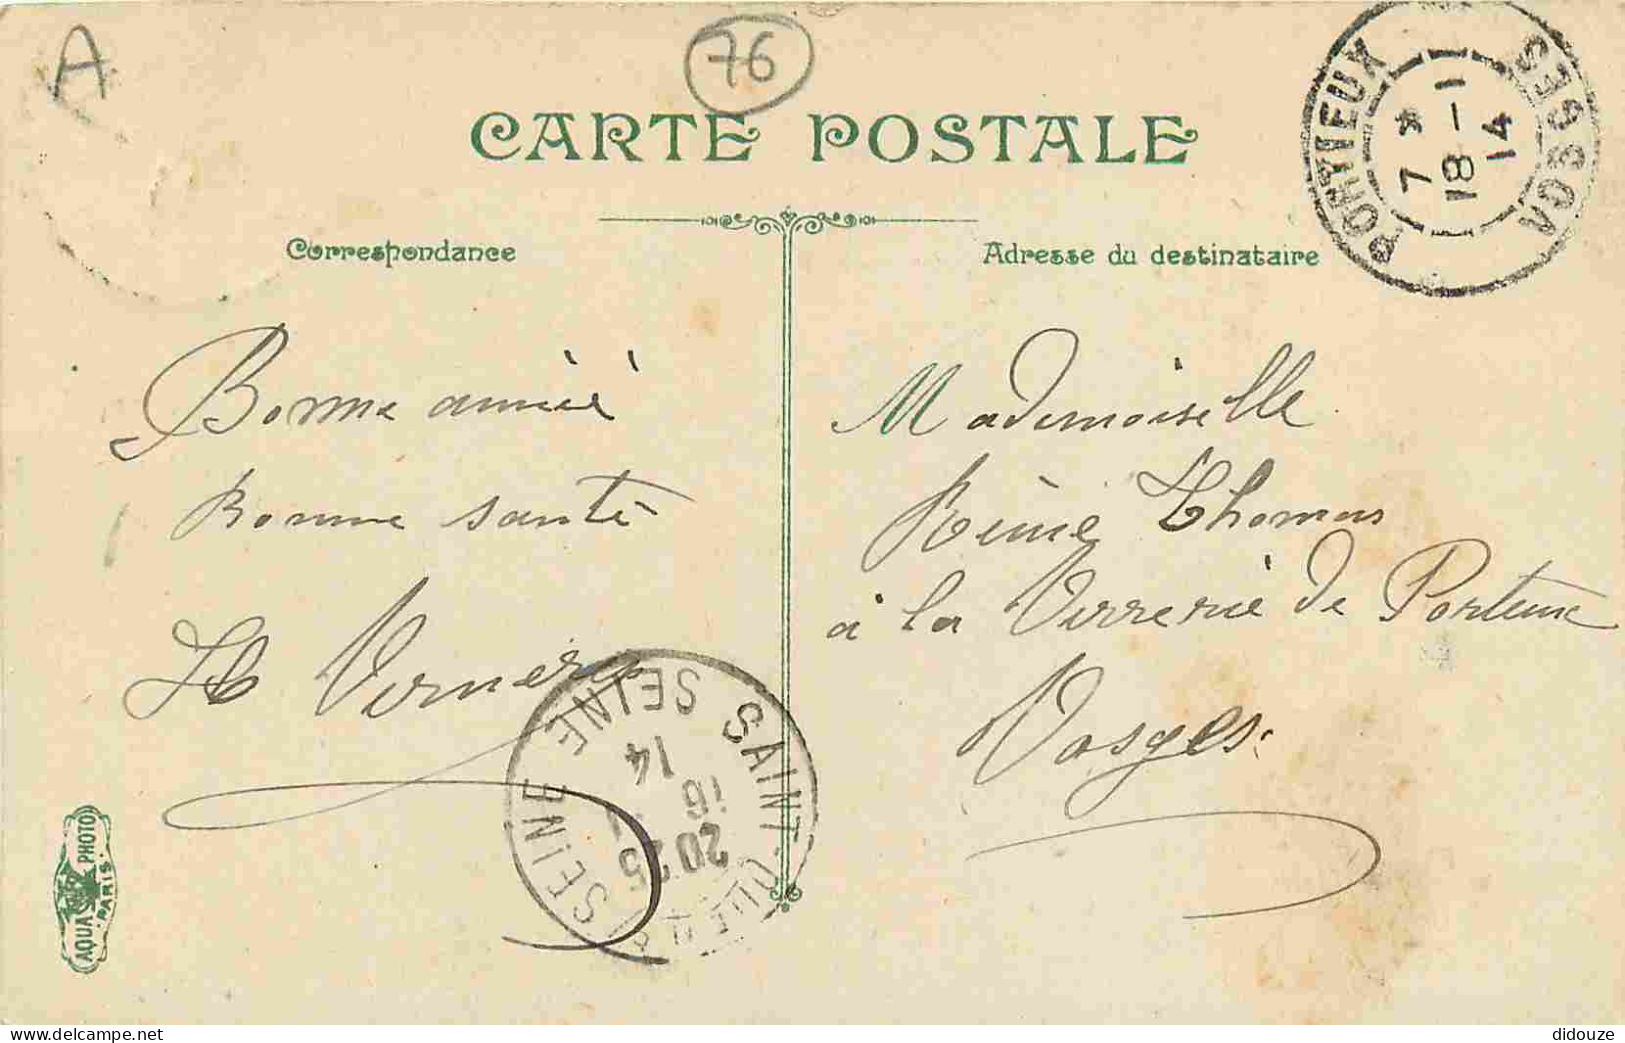 A
76
CARTE POSTALE
PORTIEUX
VOSGES
7 *
18 - 1
14
Correspondance
Adresse du destinataire
Bonne année
Bonne santé
Mademoiselle
Reine Thomas
à la Verrerie de Portieux
Vosges.
SAINT-OUEN S/ SEINE
SEINE
20 25
16
14
AQUA PHOTO
PARIS
didouze